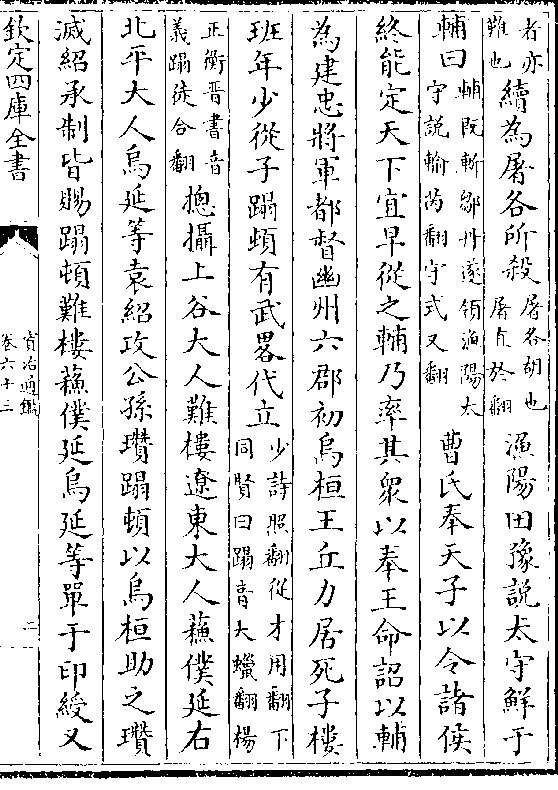 者亦難也續為屠各所殺屠各胡也屠直於翻漁陽田豫說太守鮮于
輔曰輔既斬鄒丹遂領漁陽太守說輸芮翻守式又翻曹氏奉天子以令諸侯
終能定天下宜早從之輔乃率其衆以奉王命詔以輔
為建忠將軍都督幽州六郡初烏桓王丘力居死子樓
班年少從子蹋頓有武畧代立少詩照翻從才用翻下同賢曰蹋音大蠟翻楊
正衡晉書音義蹋徒合翻摠攝上谷大人難樓遼東大人蘓僕延右
北平大人烏延等袁紹攻公孫瓚蹋頓以烏桓助之瓚
滅紹承制皆賜蹋頓難樓蘓僕延烏延等單于印綬又
欽定四庫全書
資治通鑑
卷六十三
二